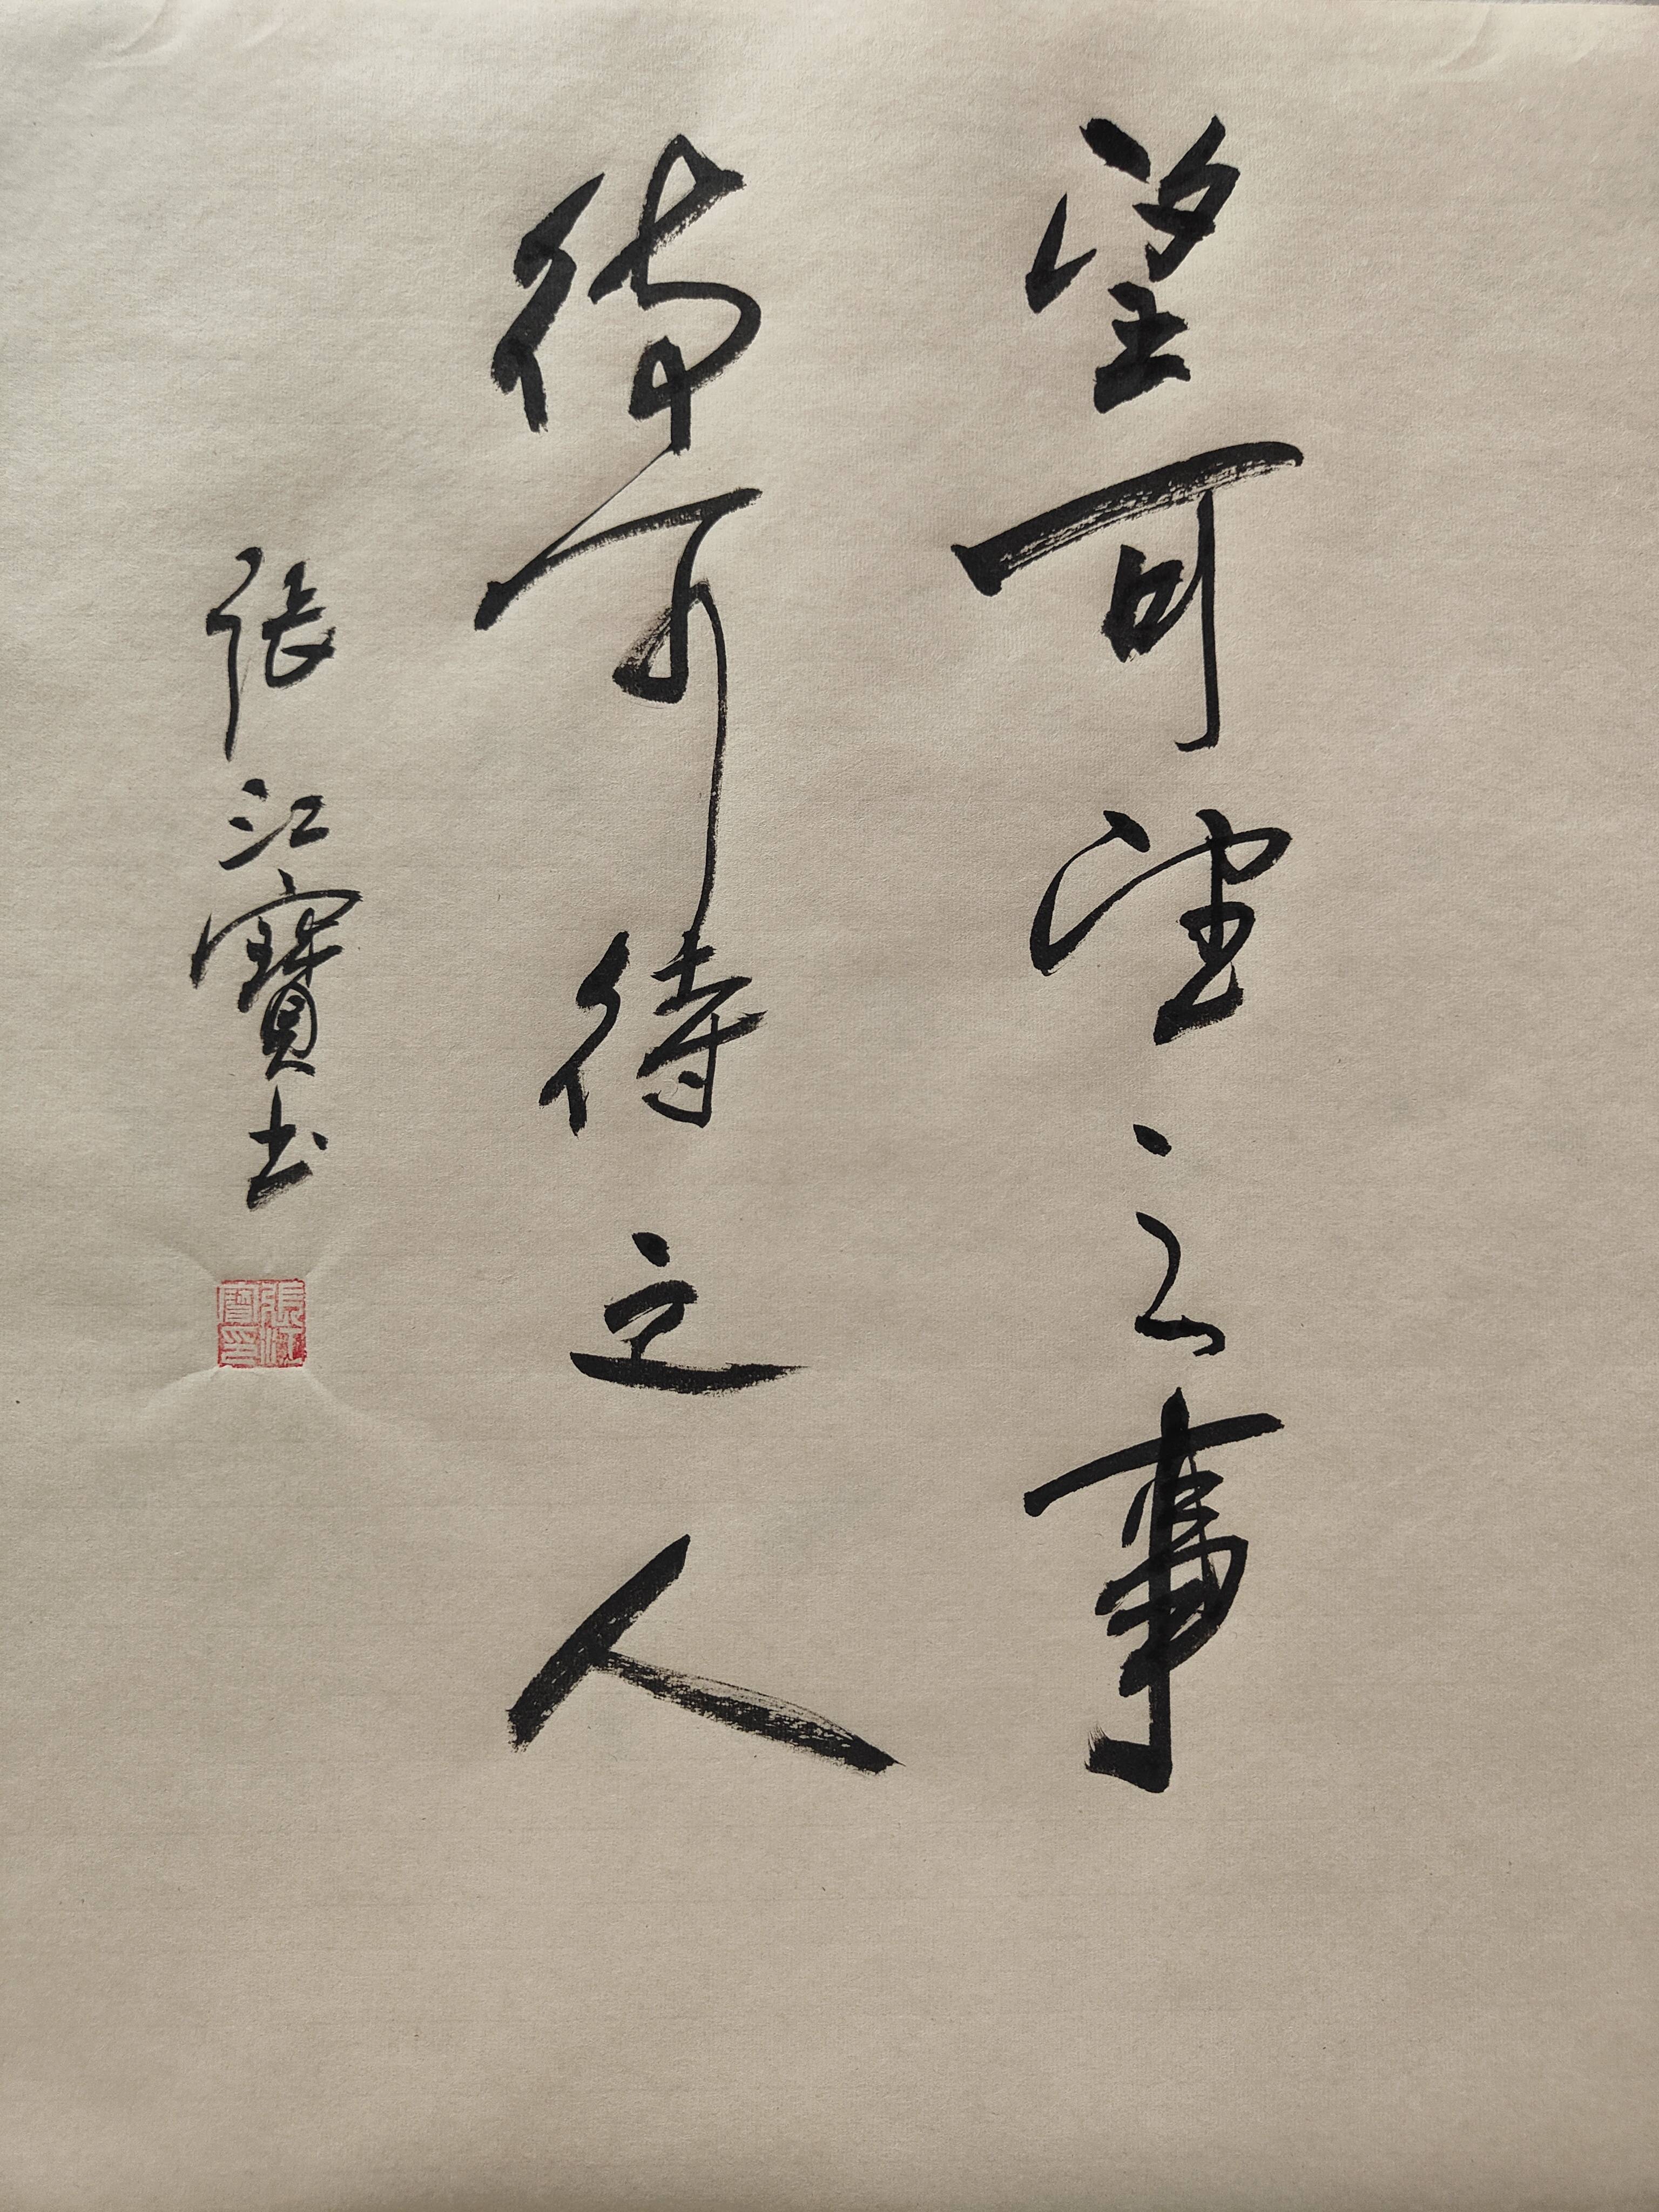 望可望之事
待可待之人
張江寶书
張江寶印